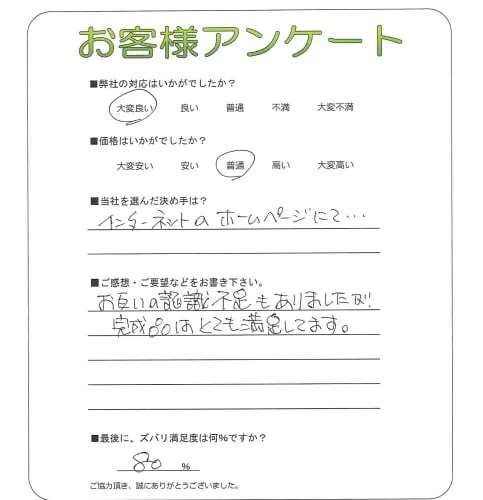 お客様アンケート
■弊社の対応はいかがでしたか？
大変良い 良い 普通 不満 大変不満
■価格はいかがでしたか？
大変安い 安い 普通 高い 大変高い
■当社を選んだ決め手は？
インターネットのホームページにて・・・
■ご感想・ご要望などをお書き下さい。
お互いの認識不足もありましたが!
完成品はとても満足してます。
■最後に、ズバリ満足度は何%ですか？
80 %
ご協力頂き、誠にありがとうございました。